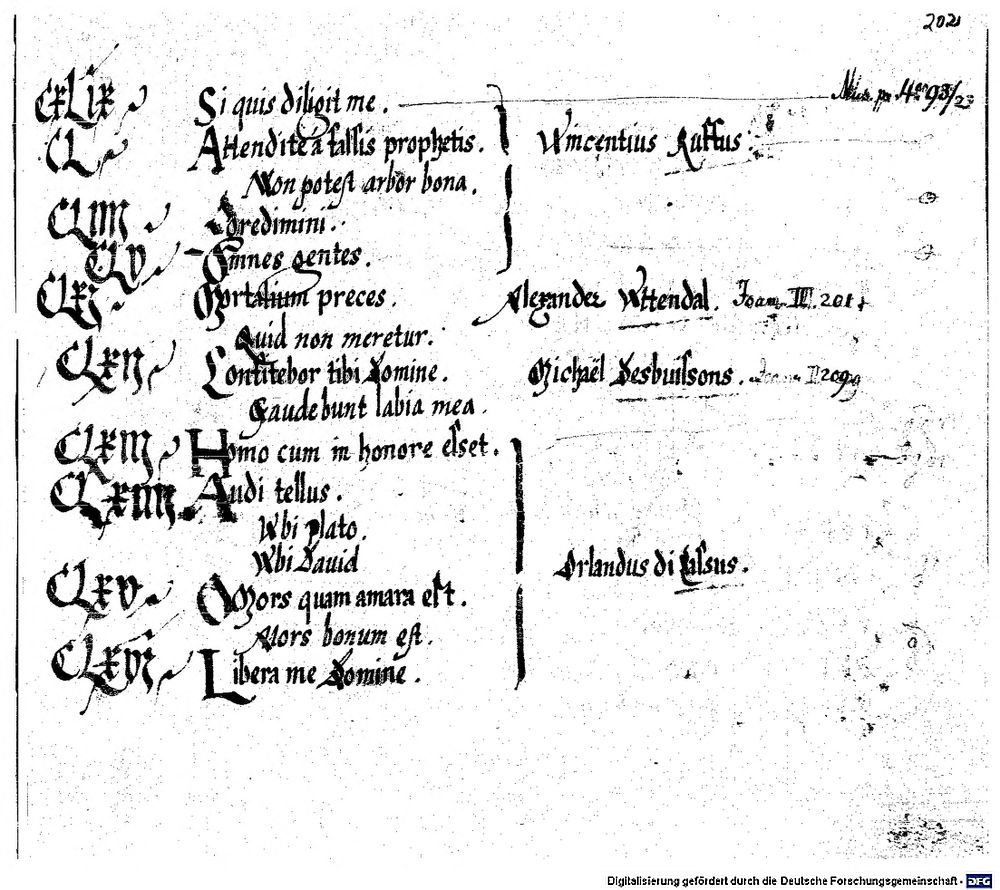 202
CXLIX Si quis diligit me. Mus. pr. 4° 93/23
CL Attendite a falsis prophetis. Vincentius Ruffus:
Non potest arbor bona.
CLIIII Credimini.
CLV Omnes gentes.
CLXI Mortalium preces. Alexander Vttendal. Joann. III. 201
Quid non meretur.
CLXII Confitebor tibi Domine. Michaël Desbuissons. 209
Gaudebunt labia mea.
CLXIII Homo cum in honore esset.
CLXIIII Audi tellus.
Vbi plato.
Vbi Dauid
Orlandus di Lassus.
CLXV O Mors quam amara est.
Mors bonum est.
CLXVI Libera me Domine.
Digitalisierung gefördert durch die Deutsche Forschungsgemeinschaft - DFG